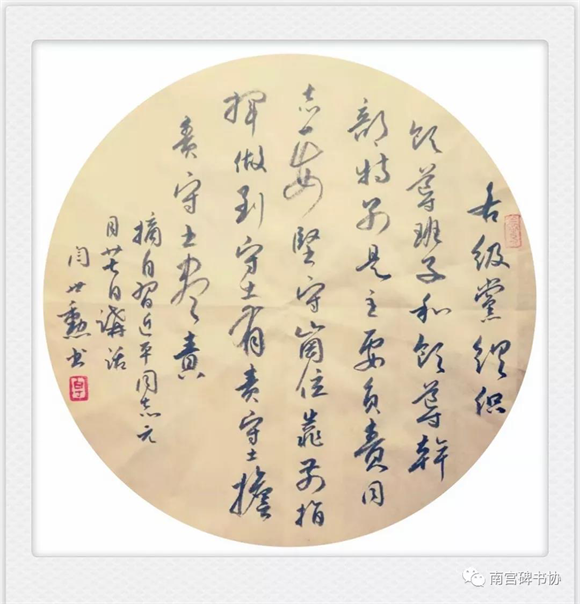 各级黨组织
领導班子和领導幹
部特别是主要负责同
志要堅守崗位靠前指
揮做到守土有责守土擔
责守土尽责
摘自習近平同志元
月廿七日講话
闫世勳书
南宫碑书协